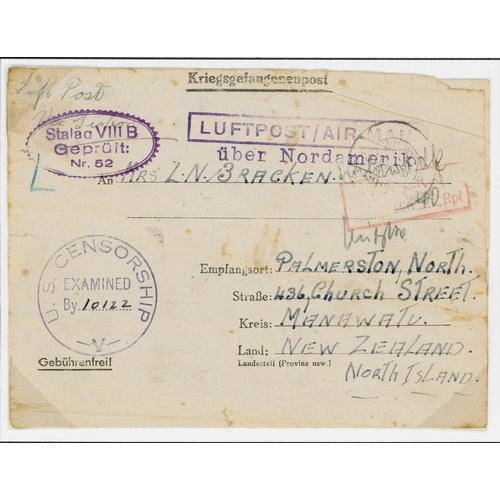 Kriegsgefangenenpost
Luft Post
Stalag VIII B
Geprüft:
Nr. 52
LUFTPOST/AIR MAIL
über Nordamerika
An MRS L.N. BRACKEN.
40 Rpf
U.S. CENSORSHIP
EXAMINED
By 10122
V
Empfangsort: PALMERSTON, NORTH.
Straße: 436, CHURCH STREET.
Kreis: MANAWATU.
Land: NEW ZEALAND.
Landesteil (Provinz usw.)
NORTH ISLAND.
Gebührenfrei!